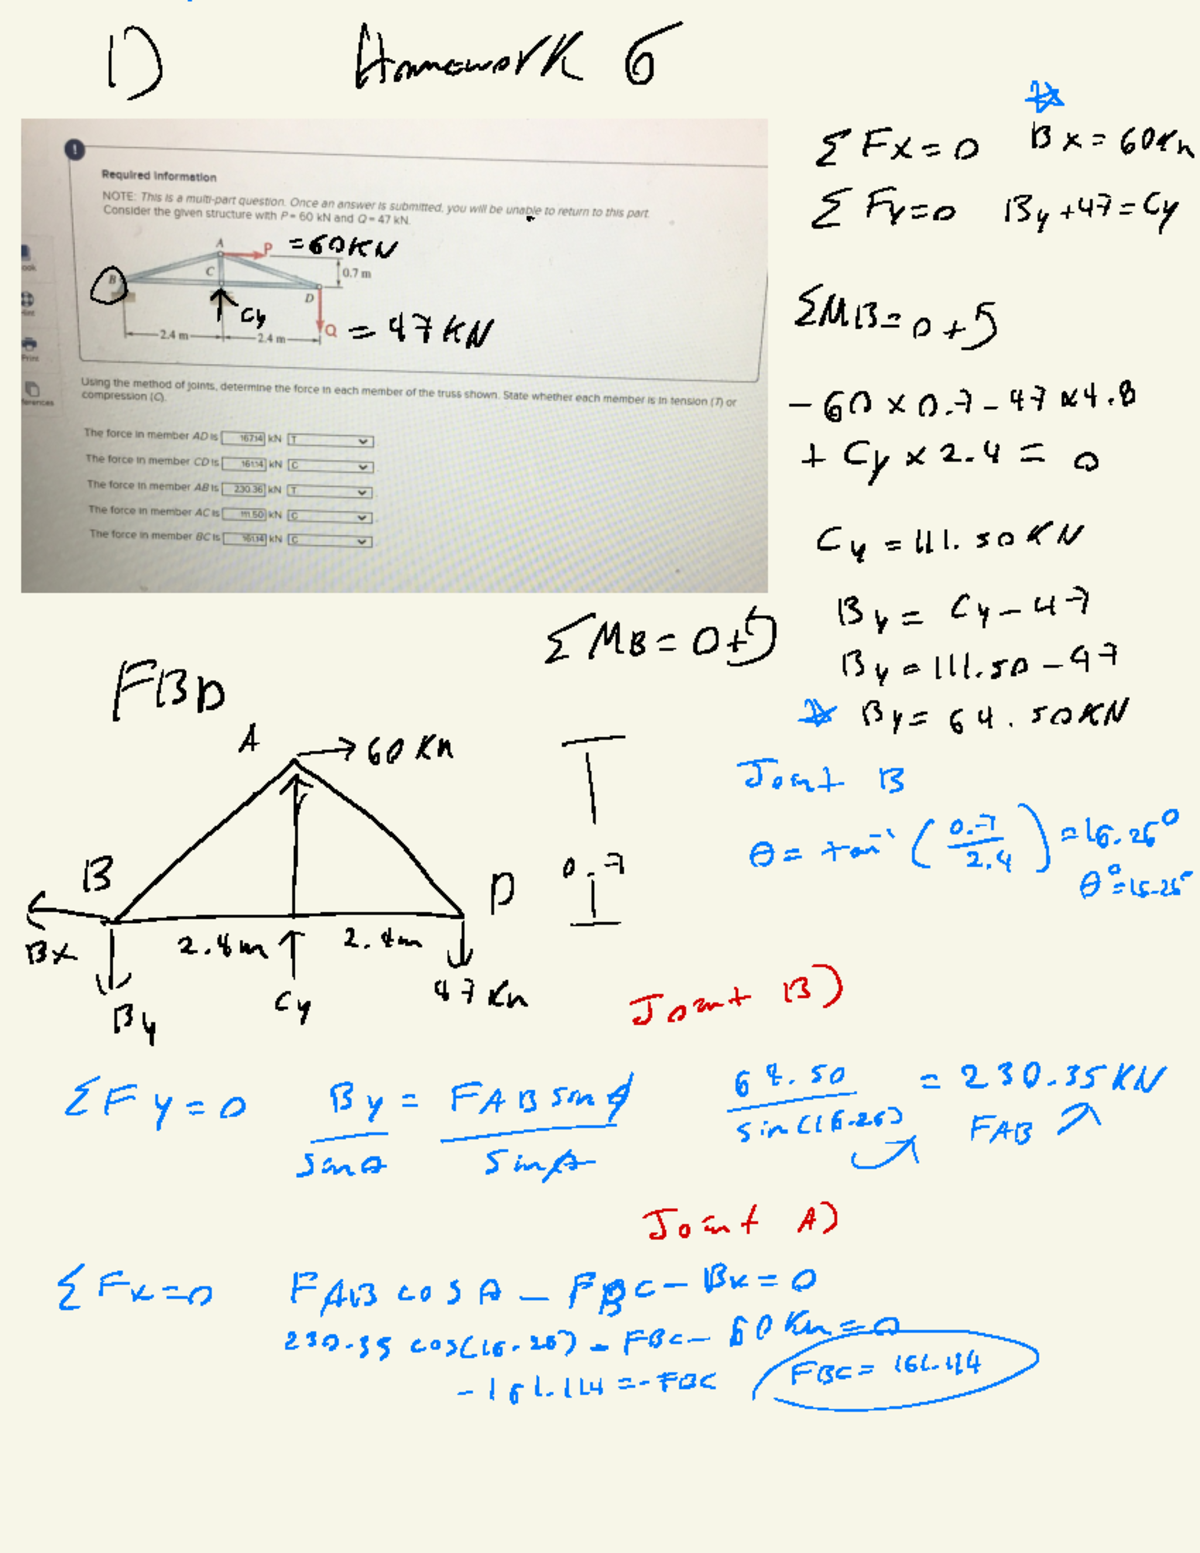 1) Homework 6
Required Information
NOTE: This is a multi-part question. Once an answer is submitted, you will be unable to return to this part.
Consider the given structure with P= 60 kN and Q= 47 kN.
A P = 60KN
B C 0.7 m
D
Cy
2.4 m 2.4 m Q = 47 KN
Using the method of joints, determine the force in each member of the truss shown. State whether each member is in tension (T) or
compression (C).
The force in member AD is 167.14 kN T
The force in member CD is 161.14 kN C
The force in member AB is 230.36 kN T
The force in member AC is 111.50 kN C
The force in member BC is 161.14 kN C
Print
ΣFx=0 Bx=60Kn
ΣFy=0 By+47=Cy
ΣMB=0+
-60×0.7-47×4.8
+Cy×2.4=0
Cy=111.50KN
By=Cy-47
By=111.50-47
By=64.50KN
ΣMB=0+
FBD
A → 60 Kn
B
D
0.7
Bx
2.4m 2.4m
By
Cy
47 Kn
Joint B
θ=tan⁻¹(0.7/2.4)=16.26°
θ°=16.26°
Joint B)
ΣFy=0 By/sinθ = FAB sinθ/sinθ 64.50/sin(16.26) = 230.35KN
FAB
Joint A)
ΣFx=0 FAB cosθ - FBC - Bx=0
230.35 cos(16.26) - FBC - 60 Kn=0
-161.14=-FBC FBC= 161.14